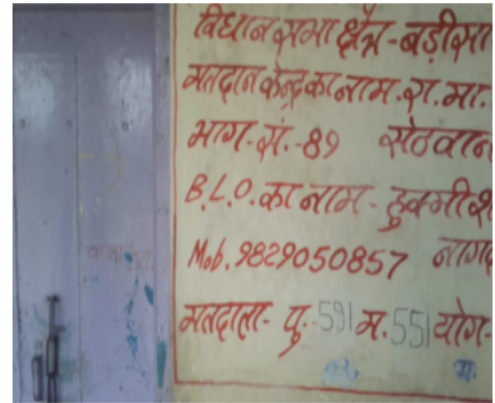 विधान सभा क्षेत्र - बड़ीसा
मतदान केन्द्र का नाम. रा. मा.
भाग. सं. - 89 सेठवाना
B.L.O. का नाम - हुक्मीश
Mob. 9829050857 नागद
मतदाता - पु. - 591 म. 551 योग -
म.